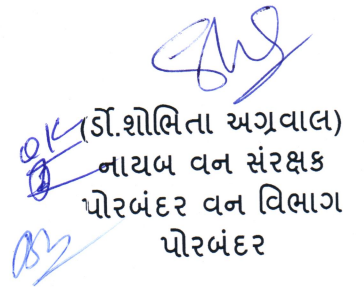 ok
(ર્ડા.શોભિતા અગ્રવાલ)
નાયબ વન સંરક્ષક
પોરબંદર વન વિભાગ
પોરબંદર